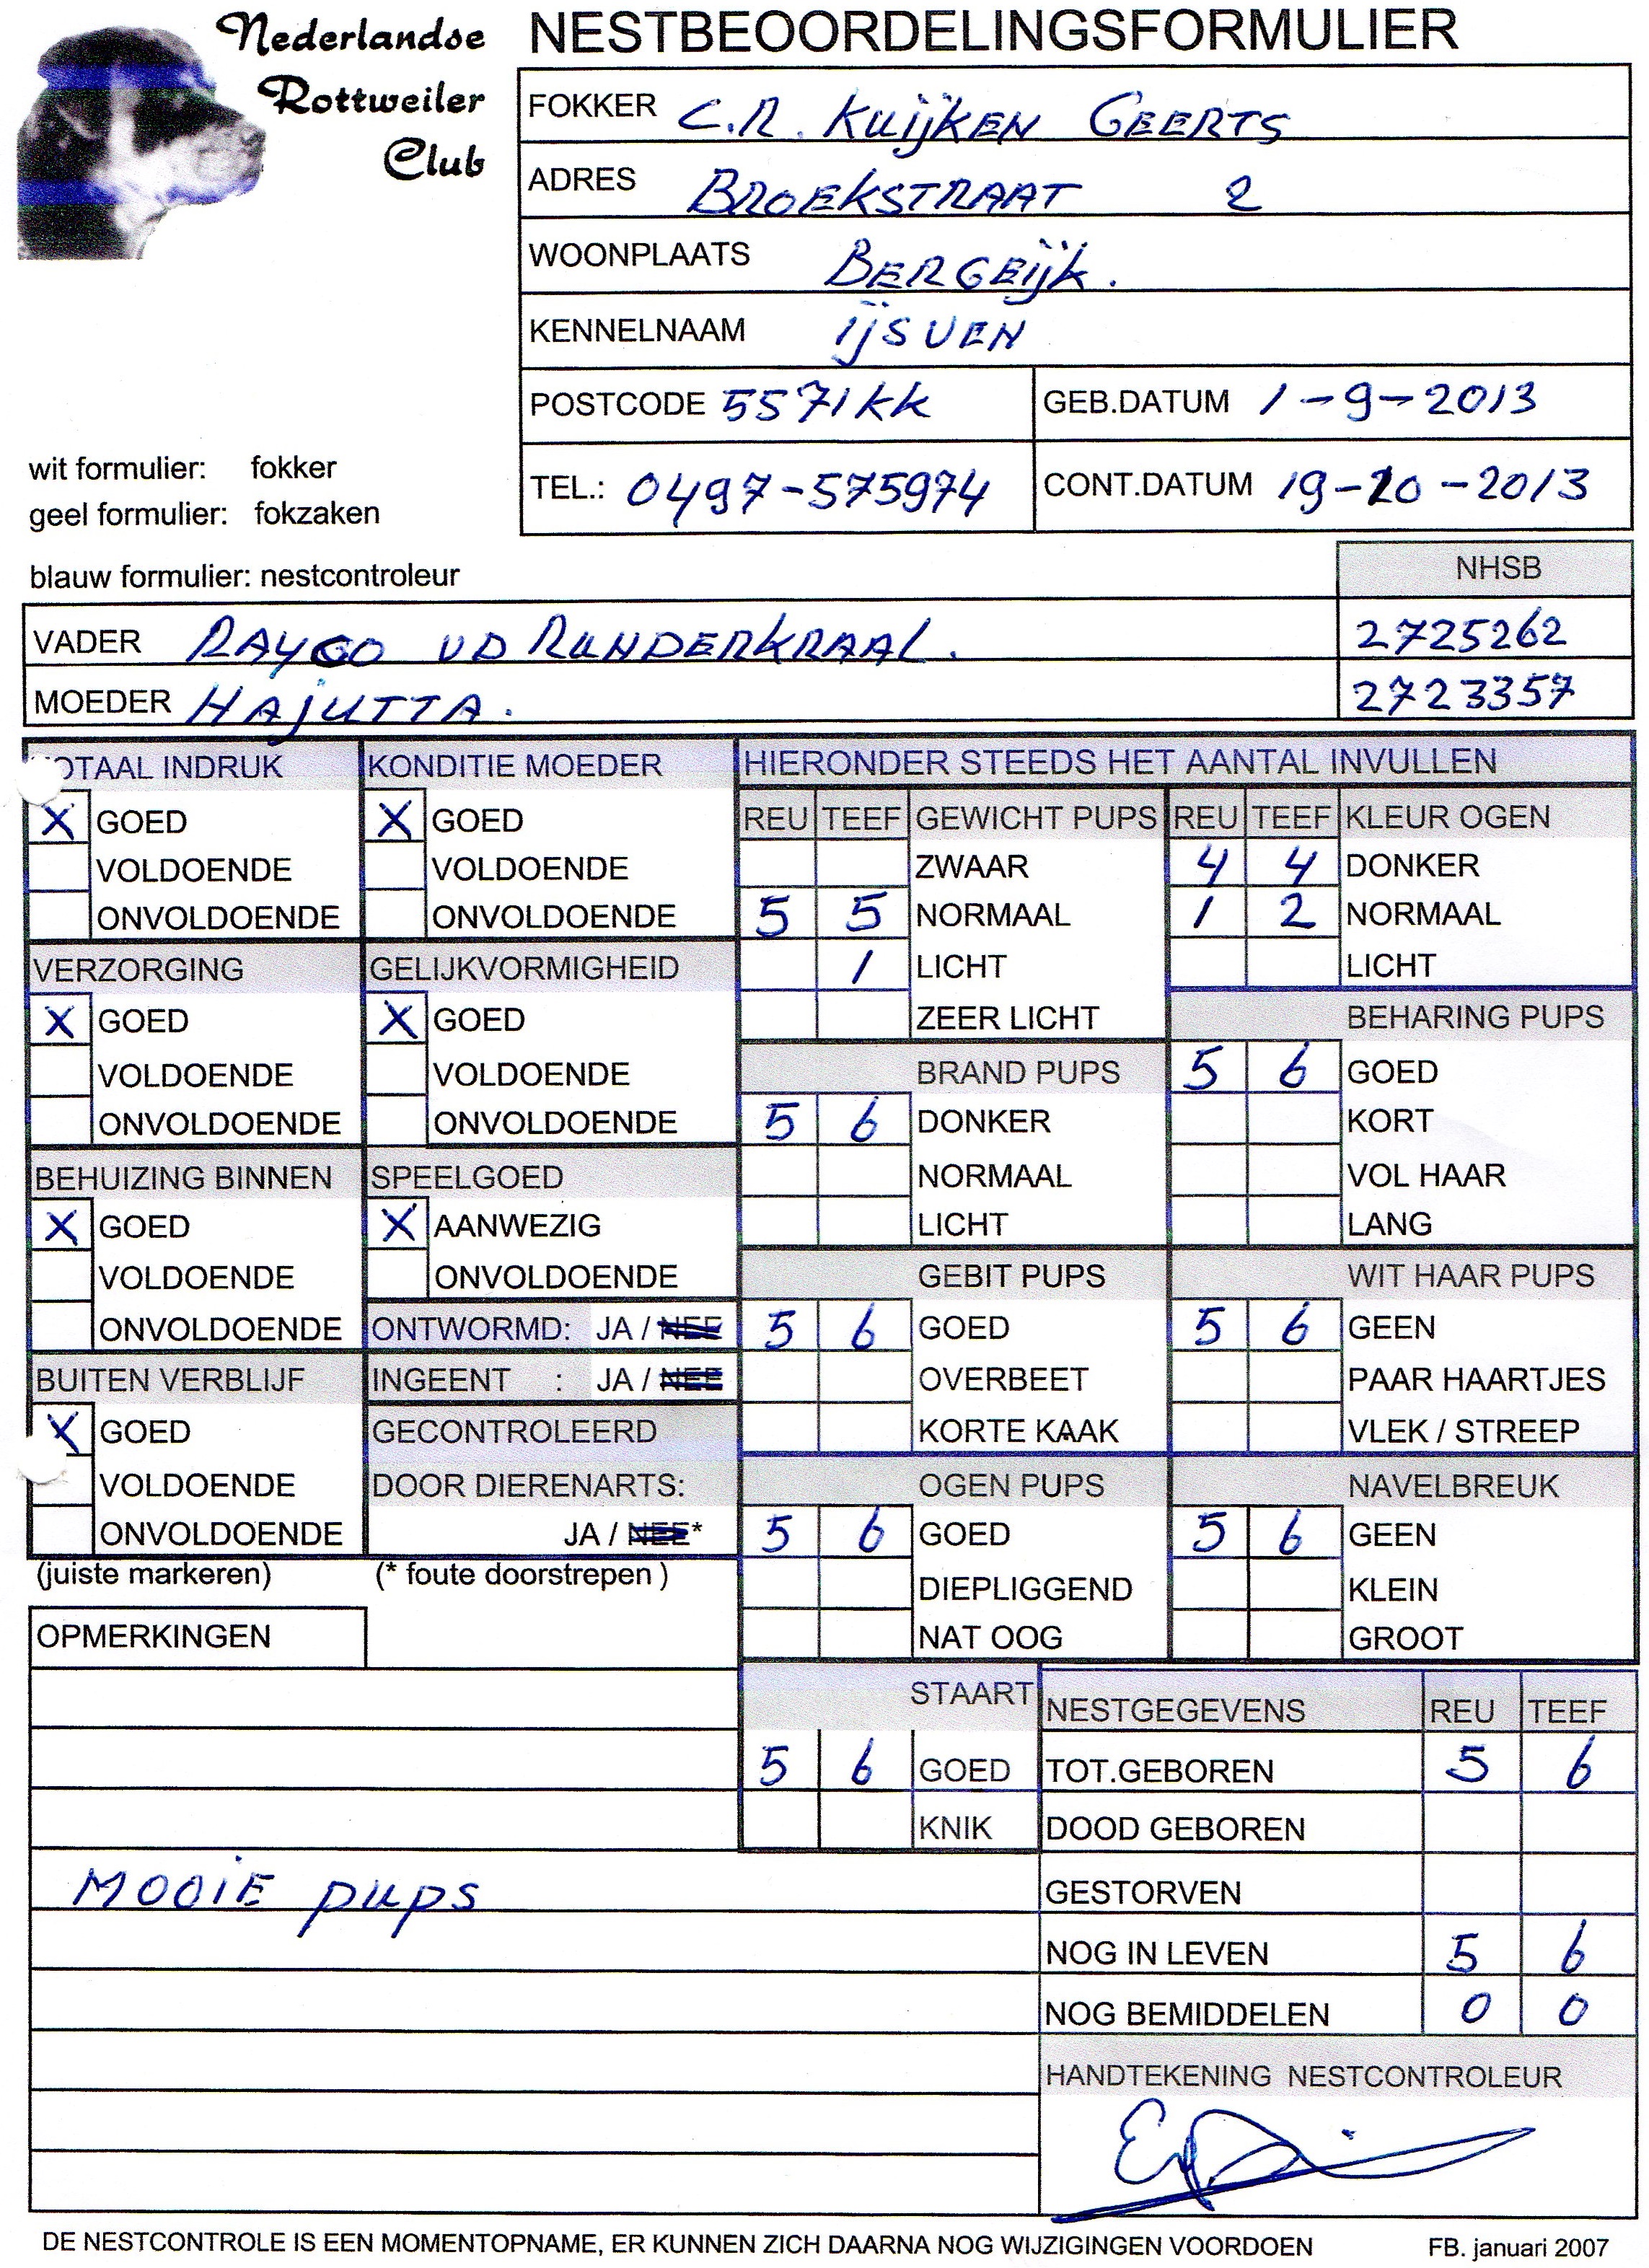 Nederlandse
Rottweiler
Club
NESTBEOORDELINGSFORMULIER
FOKKER C.R. KUIJKEN GEERTS
ADRES BROEKSTRAAT 2
WOONPLAATS BERGEIJK.
KENNELNAAM IJSVEN
POSTCODE 5571KK GEB.DATUM 1-9-2013
wit formulier: fokker
TEL.: 0497-575974 CONT.DATUM 19-10-2013
geel formulier: fokzaken
blauw formulier: nestcontroleur NHSB
VADER RAYCO VD RUNDERKRAAL. 2725262
MOEDER HAJUTTA. 2723357
TOTAAL INDRUK
X GOED
VOLDOENDE
ONVOLDOENDE
VERZORGING
X GOED
VOLDOENDE
ONVOLDOENDE
BEHUIZING BINNEN
X GOED
VOLDOENDE
ONVOLDOENDE
BUITEN VERBLIJF
X GOED
VOLDOENDE
ONVOLDOENDE
(juiste markeren)
KONDITIE MOEDER
X GOED
VOLDOENDE
ONVOLDOENDE
GELIJKVORMIGHEID
X GOED
VOLDOENDE
ONVOLDOENDE
SPEELGOED
X AANWEZIG
ONVOLDOENDE
ONTWORMD: JA / NEE
INGEENT : JA / NEE
GECONTROLEERD
DOOR DIERENARTS:
JA / NEE*
(* foute doorstrepen )
HIERONDER STEEDS HET AANTAL INVULLEN
REU TEEF GEWICHT PUPS
ZWAAR
5 5 NORMAAL
1 LICHT
ZEER LICHT
BRAND PUPS
5 6 DONKER
NORMAAL
LICHT
GEBIT PUPS
5 6 GOED
OVERBEET
KORTE KAAK
OGEN PUPS
5 6 GOED
DIEPLIGGEND
NAT OOG
STAART
5 6 GOED
KNIK
REU TEEF KLEUR OGEN
4 4 DONKER
1 2 NORMAAL
LICHT
BEHARING PUPS
5 6 GOED
KORT
VOL HAAR
LANG
WIT HAAR PUPS
5 6 GEEN
PAAR HAARTJES
VLEK / STREEP
NAVELBREUK
5 6 GEEN
KLEIN
GROOT
OPMERKINGEN
MOOIE pups
NESTGEGEVENS REU TEEF
TOT.GEBOREN 5 6
DOOD GEBOREN
GESTORVEN
NOG IN LEVEN 5 6
NOG BEMIDDELEN 0 0
HANDTEKENING NESTCONTROLEUR
DE NESTCONTROLE IS EEN MOMENTOPNAME, ER KUNNEN ZICH DAARNA NOG WIJZIGINGEN VOORDOEN FB. januari 2007